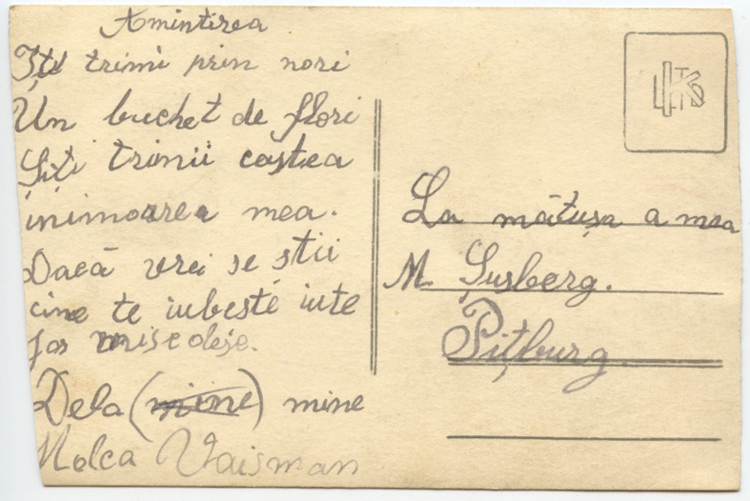 Amintirea
Iți trimi prin nori
Un buchet de flori
Șiți trimii castea
inimoarea mea.
Dacă vrei se stii
cine te iubeste iute
jos
Dela (mine) mine
Molca Vaisman
La mătușa a mea
M. Șusberg.
Pițburg.